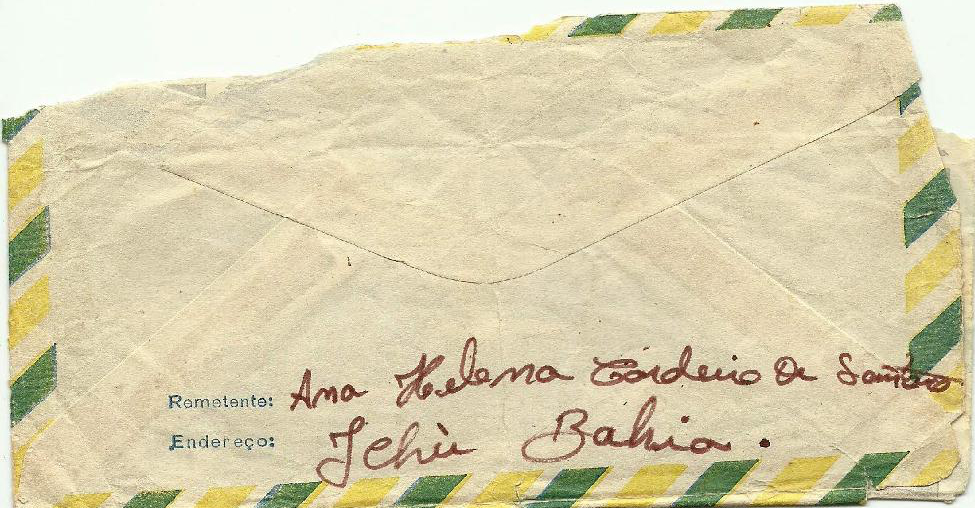 Remetente: Ana Helena Cordeiro de Santana
Endereço: Ichù Bahia.